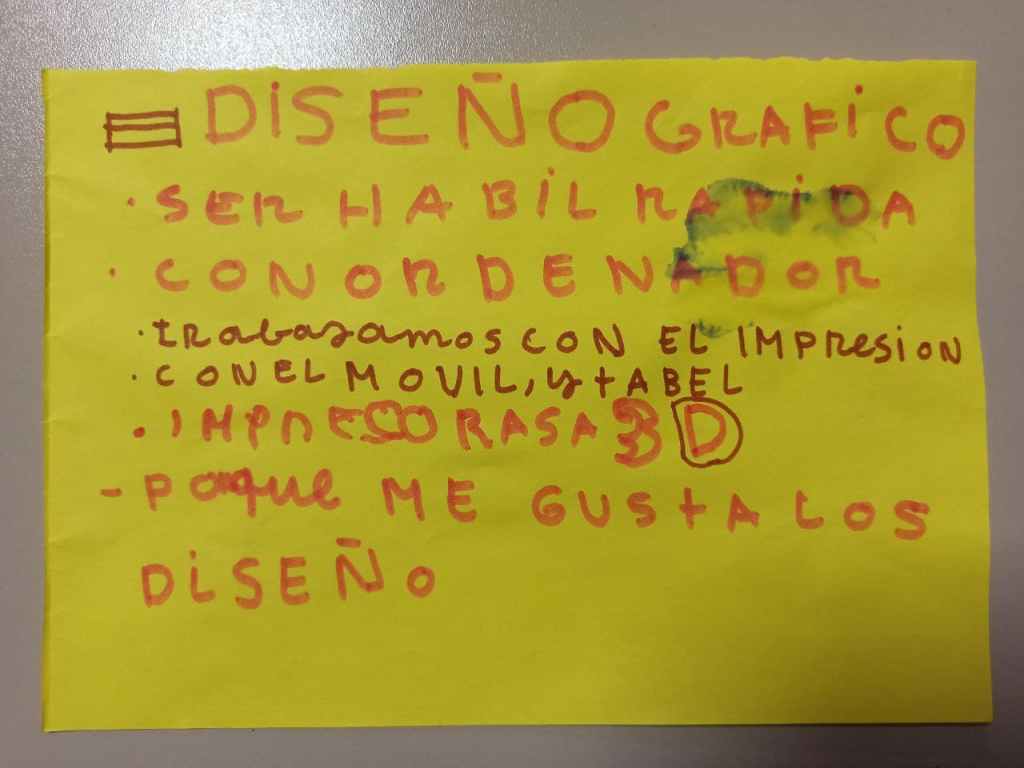 DISEÑO GRAFICO
· SER HABIL RAPIDA
· CON ORDENADOR
· trabasamos CON EL IMPResION
· CON EL MOVIL, y tABEL
· IMPRESORASA 3 D
- Porque ME GUStA LOS
DISEÑO